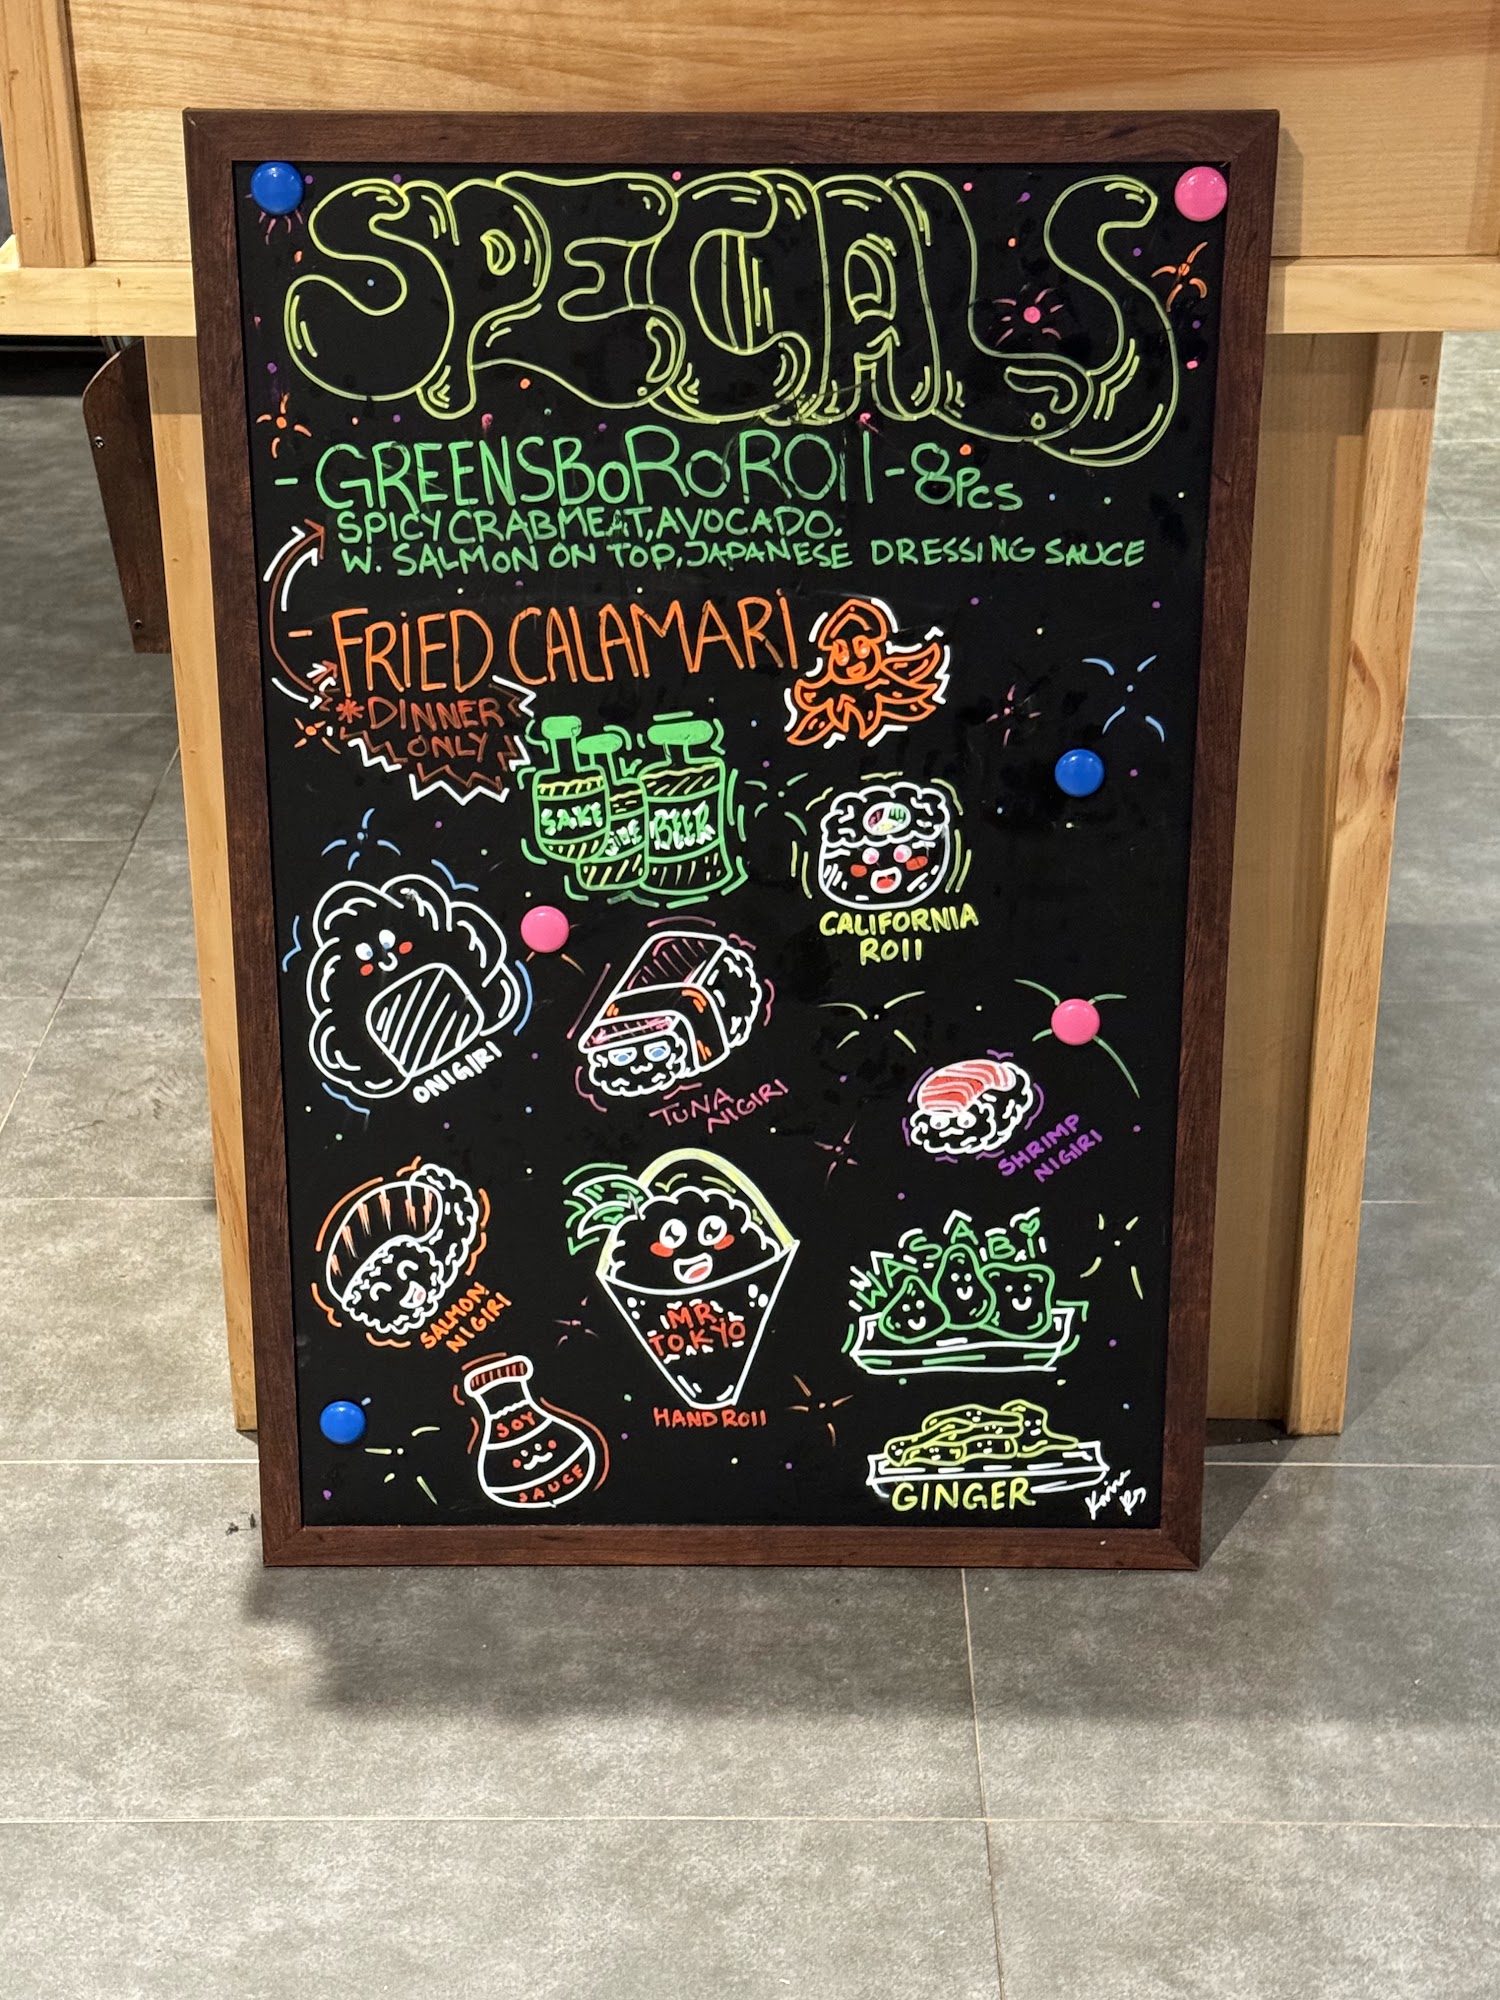 SPECALS
- GREENSBORO ROll - 8Pcs
SPICY CRABMEAT, AVOCADO.
W. SALMON ON TOP, JAPANESE DRESSING SAUCE
- FRiED CALAMARi
*DINNER
ONLY
SAKE
BEER
CALIFORNIA
ROll
ONIGIRI
TUNA
NIGIRI
SHRIMP
NIGIRI
SALMON
NIGIRI
MR.
TOKYO
HAND ROll
WASABI
SOY
SAUCE
GINGER